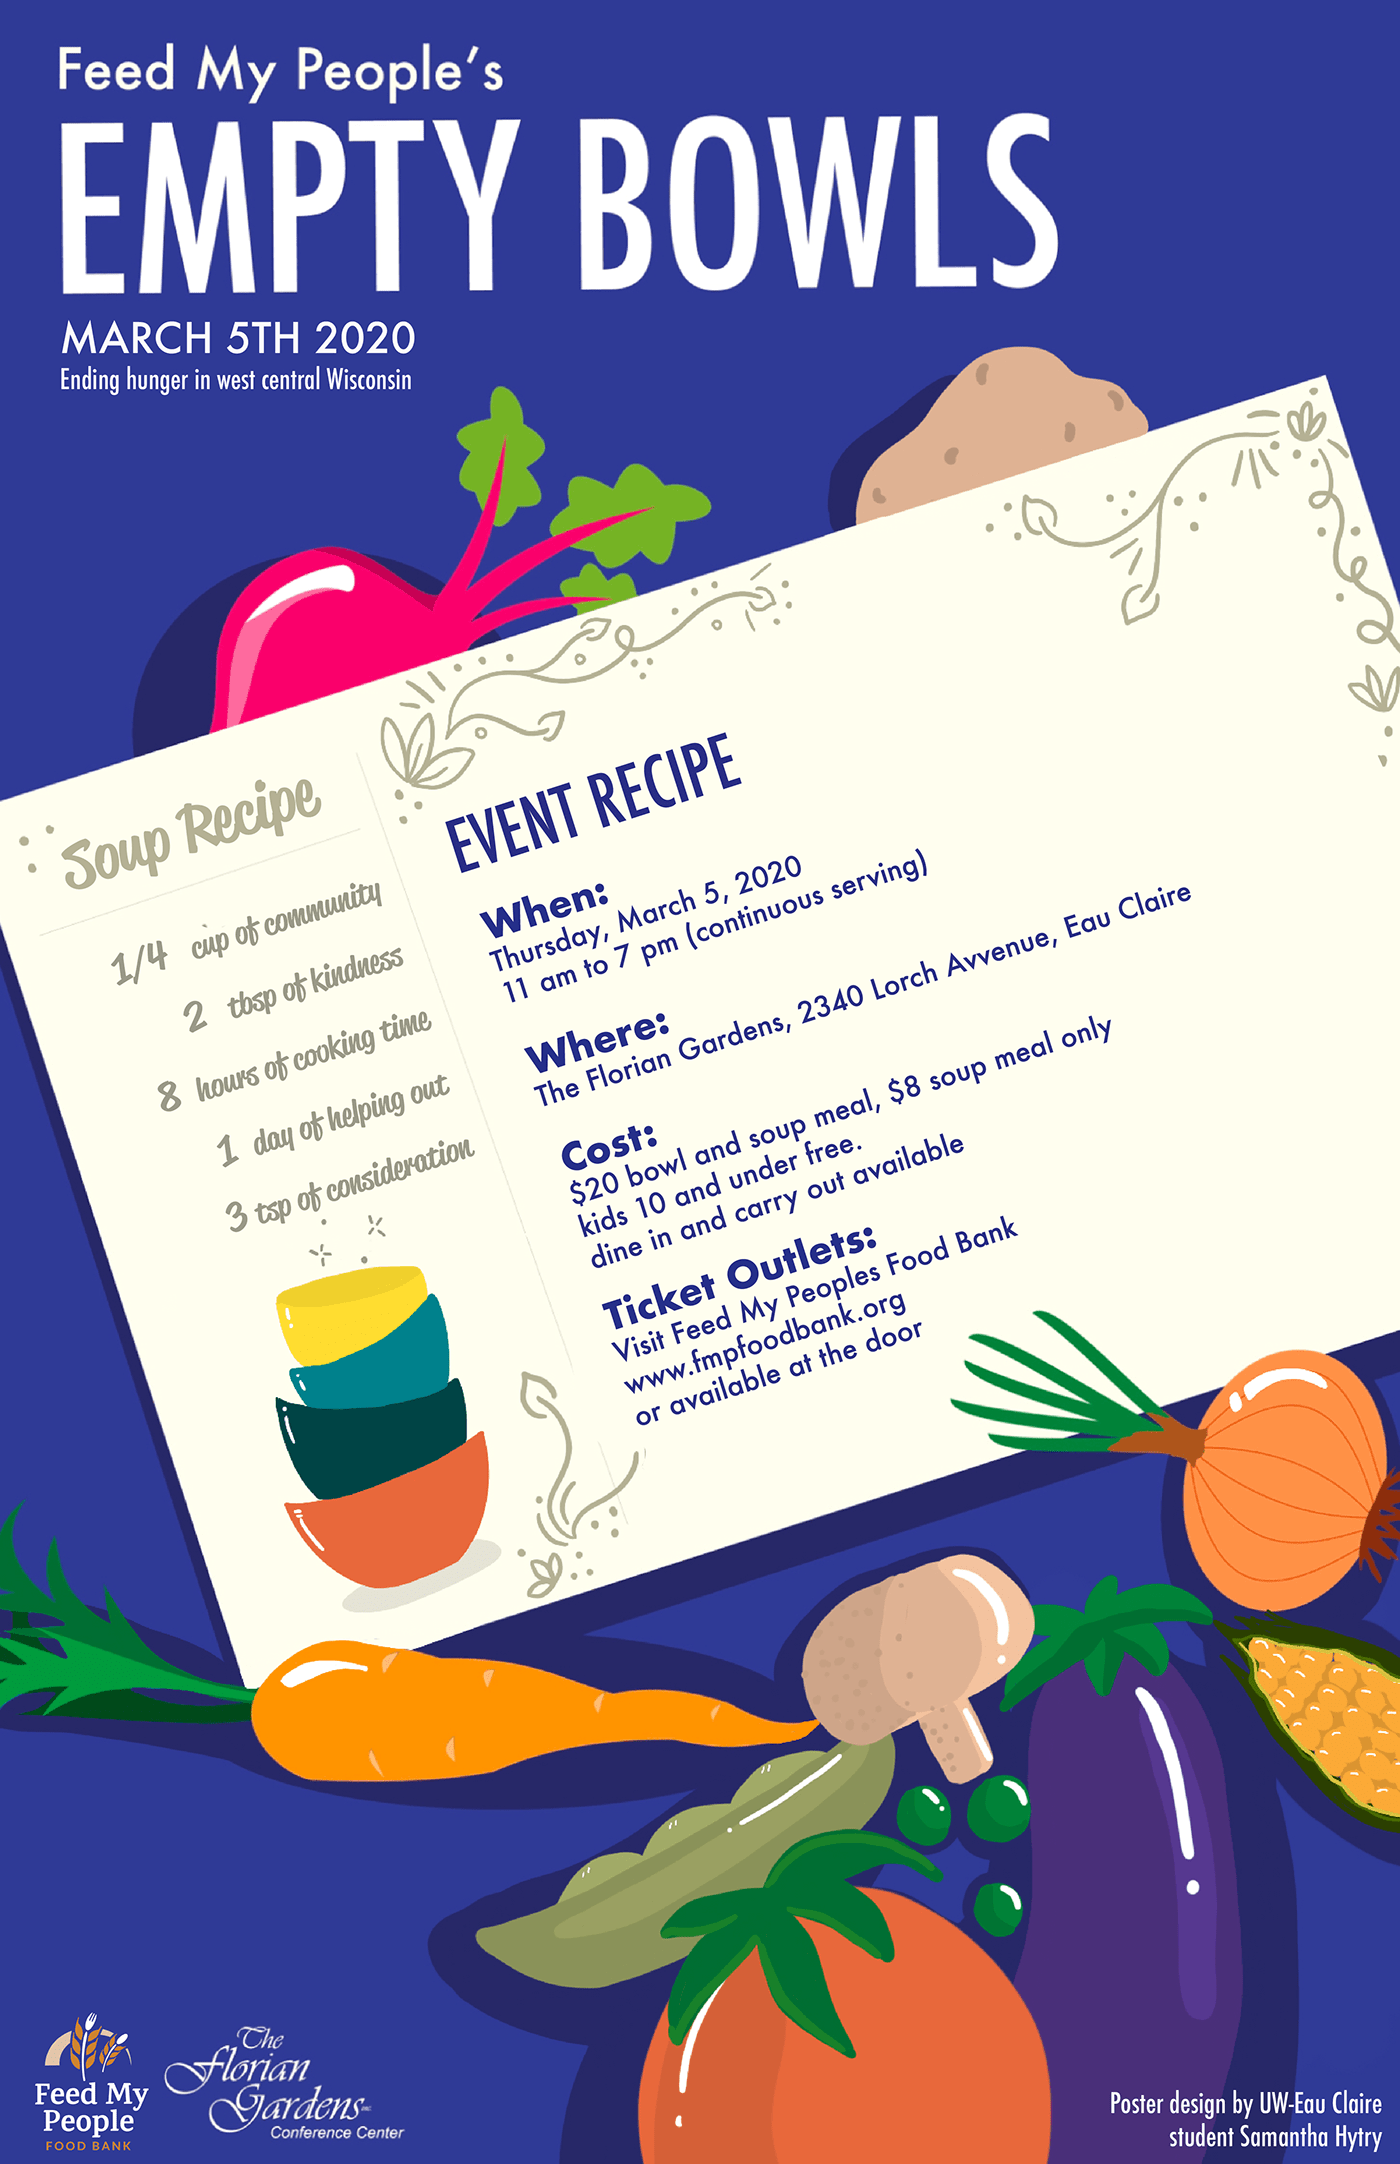 Feed My People's
EMPTY BOWLS
MARCH 5TH 2020
Ending hunger in west central Wisconsin
Soup Recipe
1/4 cup of community
2 tbsp of kindness
8 hours of cooking time
1 day of helping out
3 tsp of consideration
EVENT RECIPE
When:
Thursday, March 5, 2020
11 am to 7 pm (continuous serving)
Where:
The Florian Gardens, 2340 Lorch Avvenue, Eau Claire
Cost:
$20 bowl and soup meal, $8 soup meal only
kids 10 and under free.
dine in and carry out available
Ticket Outlets:
Visit Feed My Peoples Food Bank
www.fmpfoodbank.org
or available at the door
Feed My
People
FOOD BANK
The
Florian
Gardens
Conference Center
Poster design by UW-Eau Claire
student Samantha Hytry